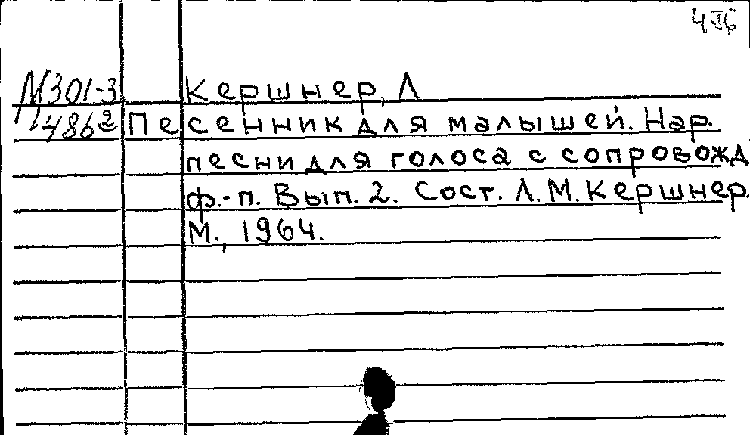 М301-3
П486²
Кершнер, Л
Песенник для малышей. Нар.
песни для голоса с сопровожд
ф.-п. Вып. 2. Сост. Л. М. Кершнер.
М., 1964.